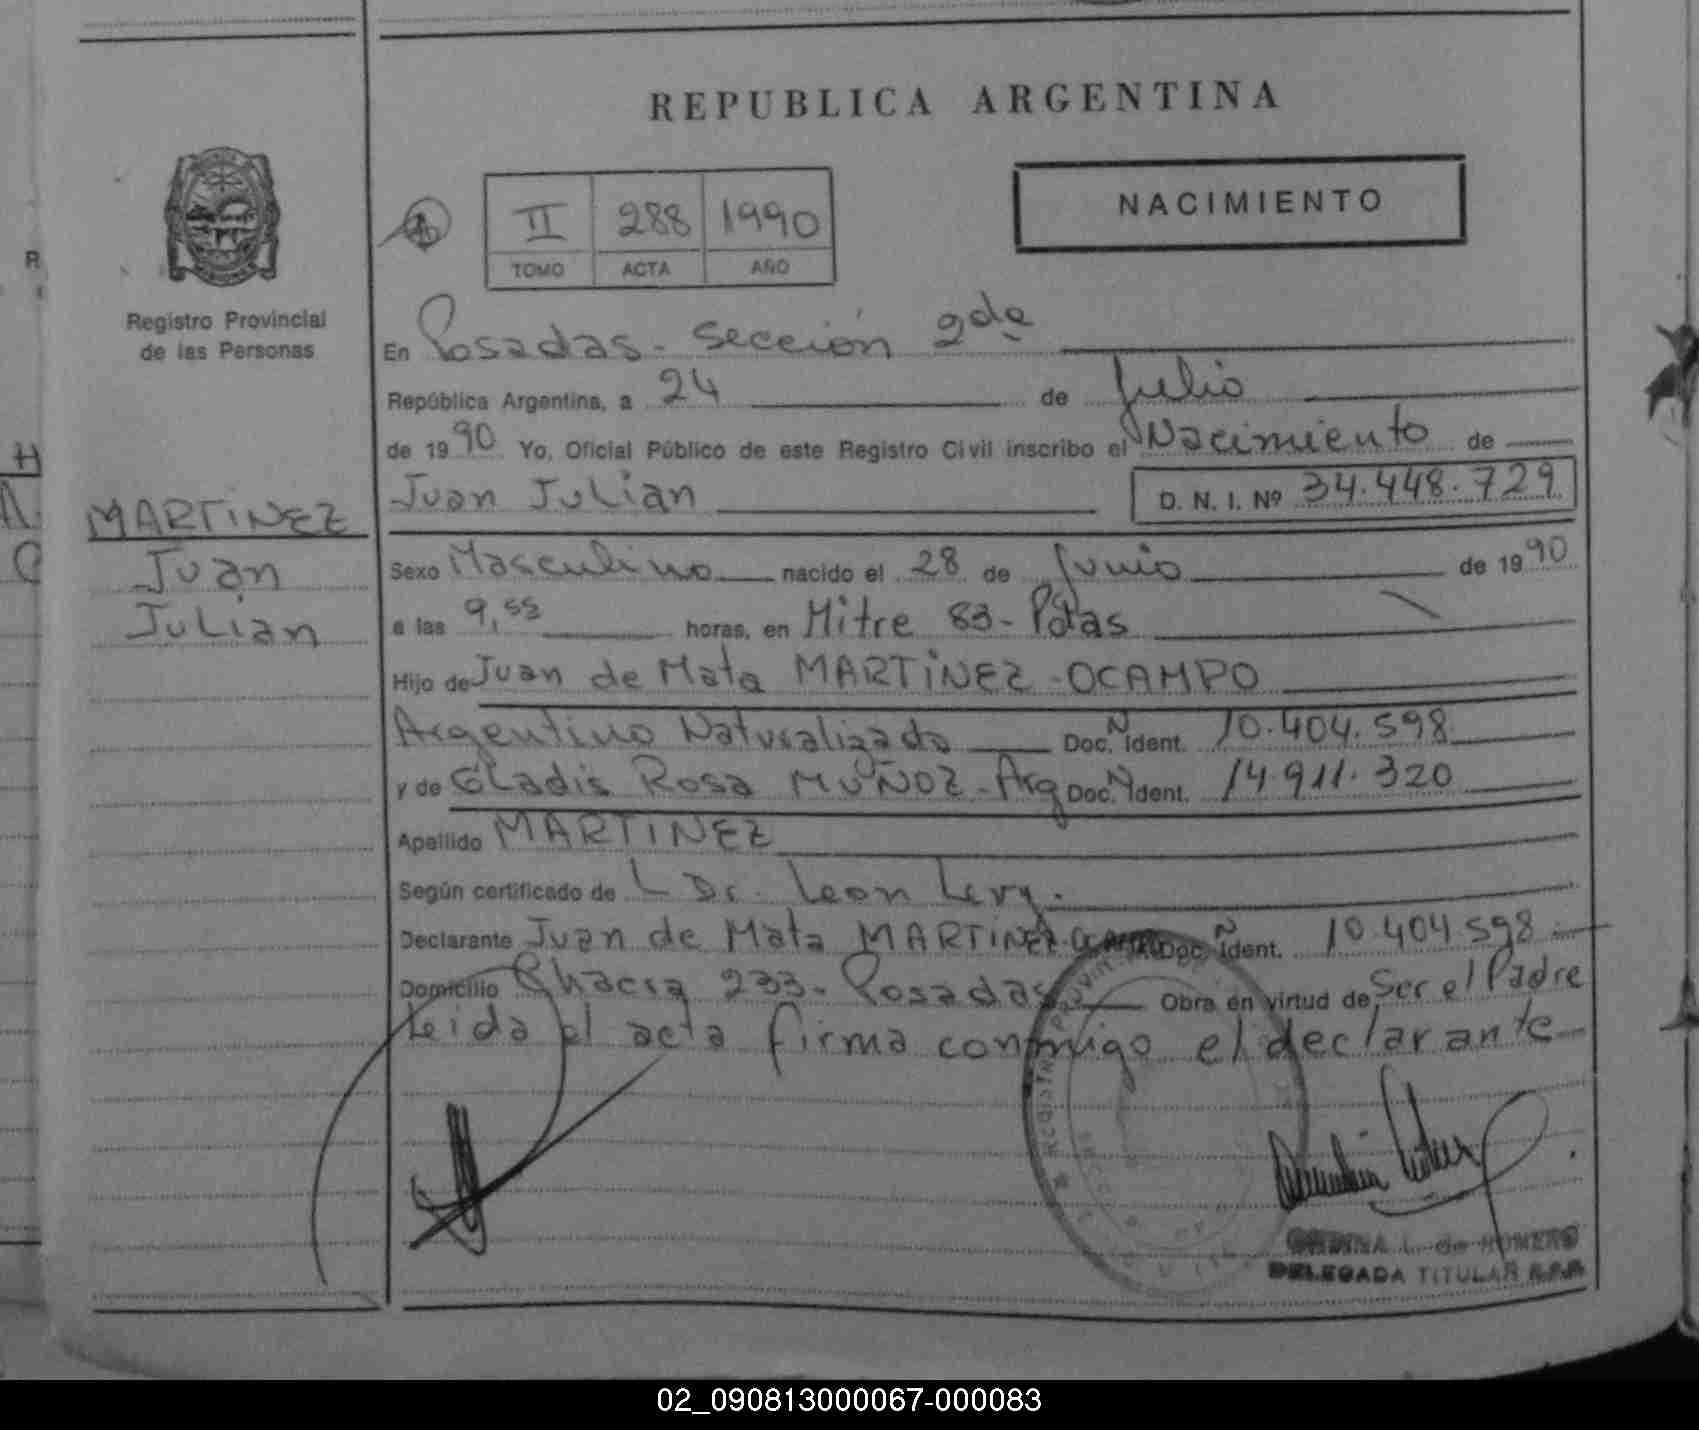 REPUBLICA ARGENTINA
II 288 1990
TOMO ACTA AÑO
NACIMIENTO
Registro Provincial
de las Personas
MARTINEZ
Juan
Julian
En Posadas - Sección 2da
República Argentina, a 24 de Julio
de 1990 Yo, Oficial Público de este Registro Civil inscribo el Nacimiento de
Juan Julian D. N. I. Nº 34.448.729
Sexo Masculino nacido el 28 de Junio de 1990
a las 9,55 horas, en Mitre 83 - Pdas
Hijo de Juan de Mata MARTINEZ - OCAMPO
Argentino Naturalizado Doc. N Ident. 10.404.598
y de Gladis Rosa MUÑOZ - Arg Doc. N Ident. 14.911.320
Apellido MARTINEZ
Según certificado de Dr. Leon Levy.
Declarante Juan de Mata MARTINEZ - OCAMPO Doc. N Ident. 10.404.598
Domicilio Chacra 233 - Posadas Obra en virtud de Ser el Padre
Leida el acta firma conmigo el declarante
L. de ROMERO
DELEGADA TITULAR R.P.P.
02_090813000067-000083